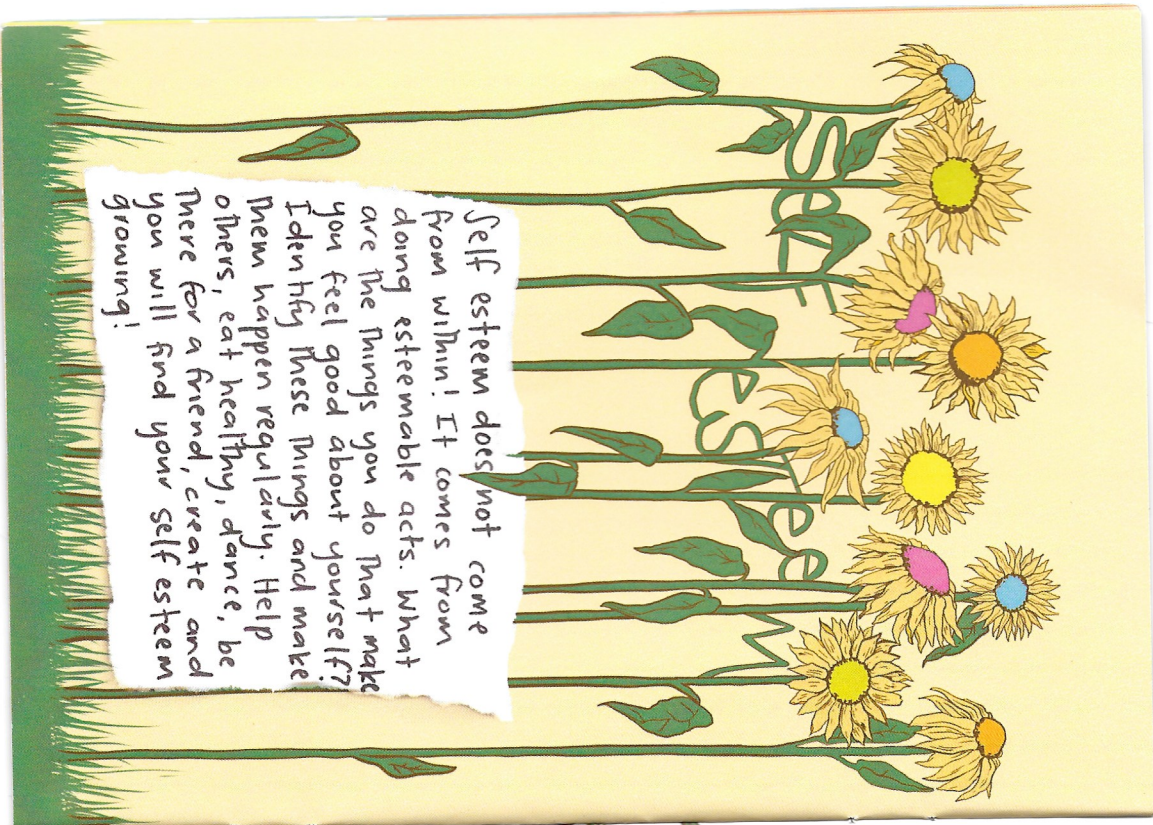 Self
esteem
Self esteem does not come
from within! It comes from
doing esteemable acts. What
are the things you do that make
you feel good about yourself?
Identify these things and make
them happen regularly. Help
others, eat healthy, dance, be
there for a friend, create and
you will find your self esteem
growing!